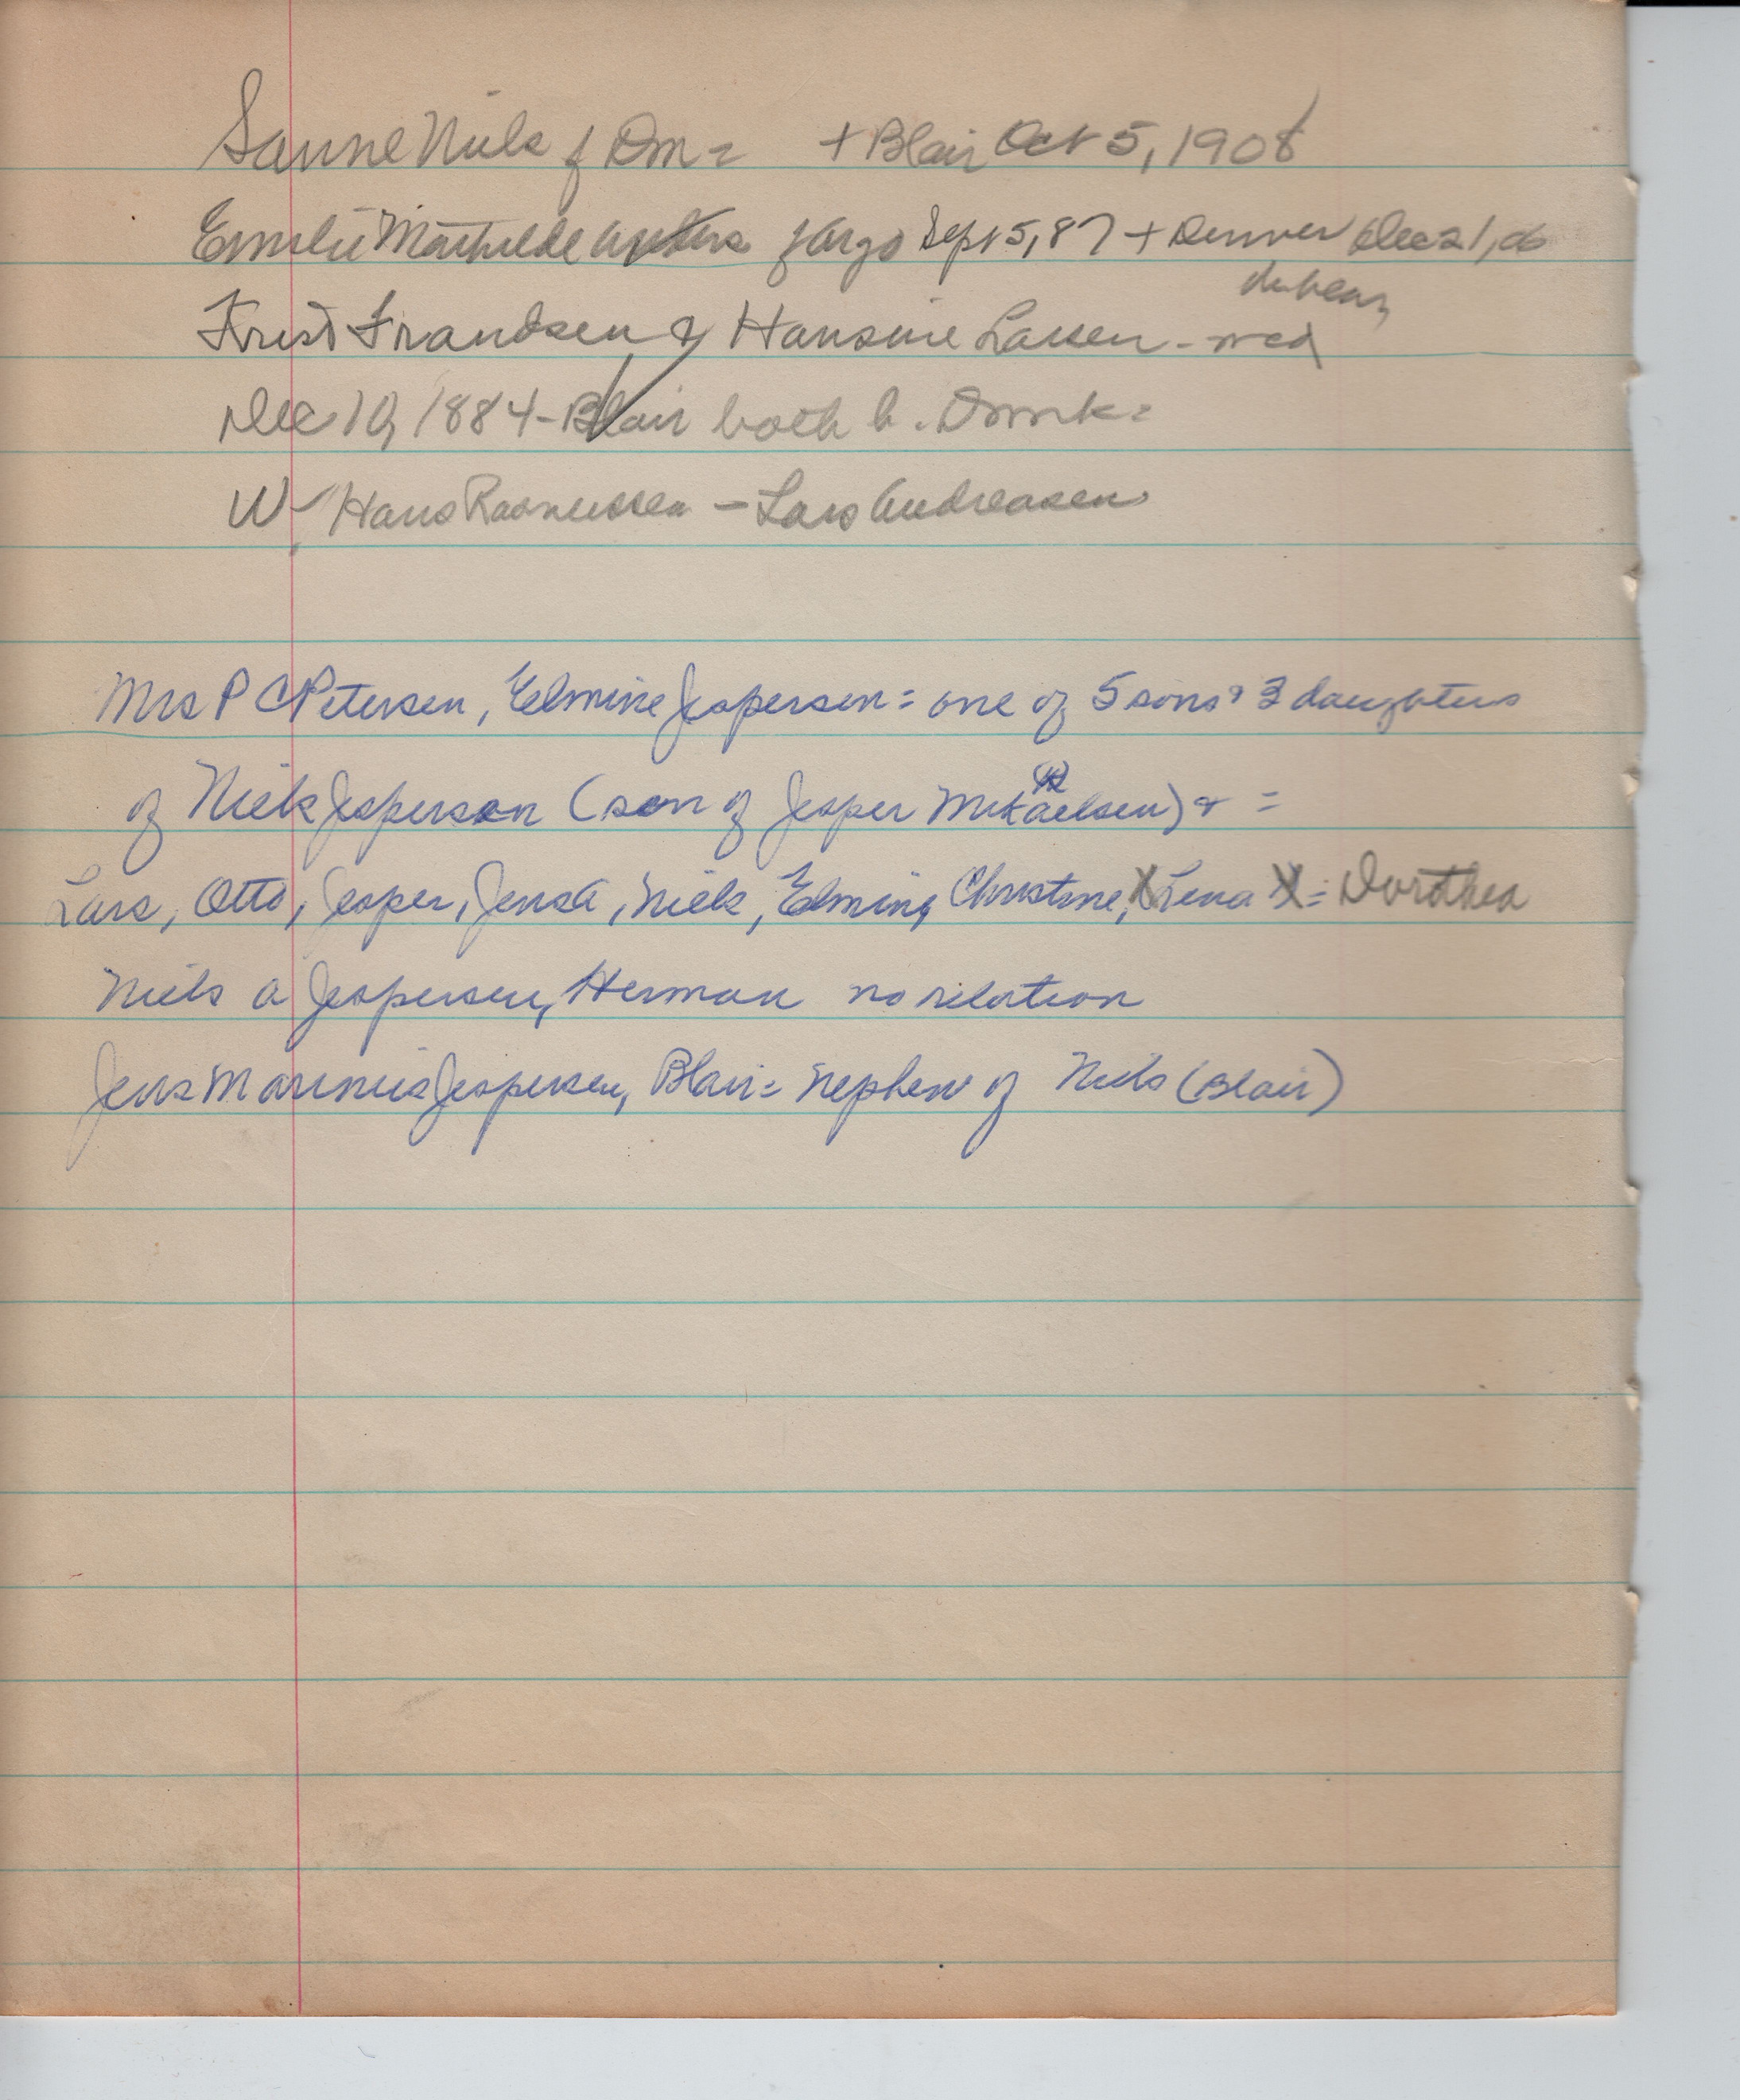 Sanne Niels f Dm = + Blair Oct 5, 1908
Emilie Mathilde f Argo Sept 5, 87 + Denver Dec 21, 06
Krist Frandsen & Hansine Larsen - med
Dec 10, 1884 - Blair both b. Dmrk =
W - Hans Rasmussen - Lars Andreasen
Mrs P C Petersen, Elmine Jespersen = one of 5 sons & 3 daughters
of Niels Jespersen (son of Jesper Mikaelsen) & =
Lars, Otto, Jesper, Jens A, Niels, Elmine, Christine, X Lena X = Dorothea
Niels A Jespersen, Herman no relation
Jens Marinus Jespersen, Blair = nephew of Niels (Blair)